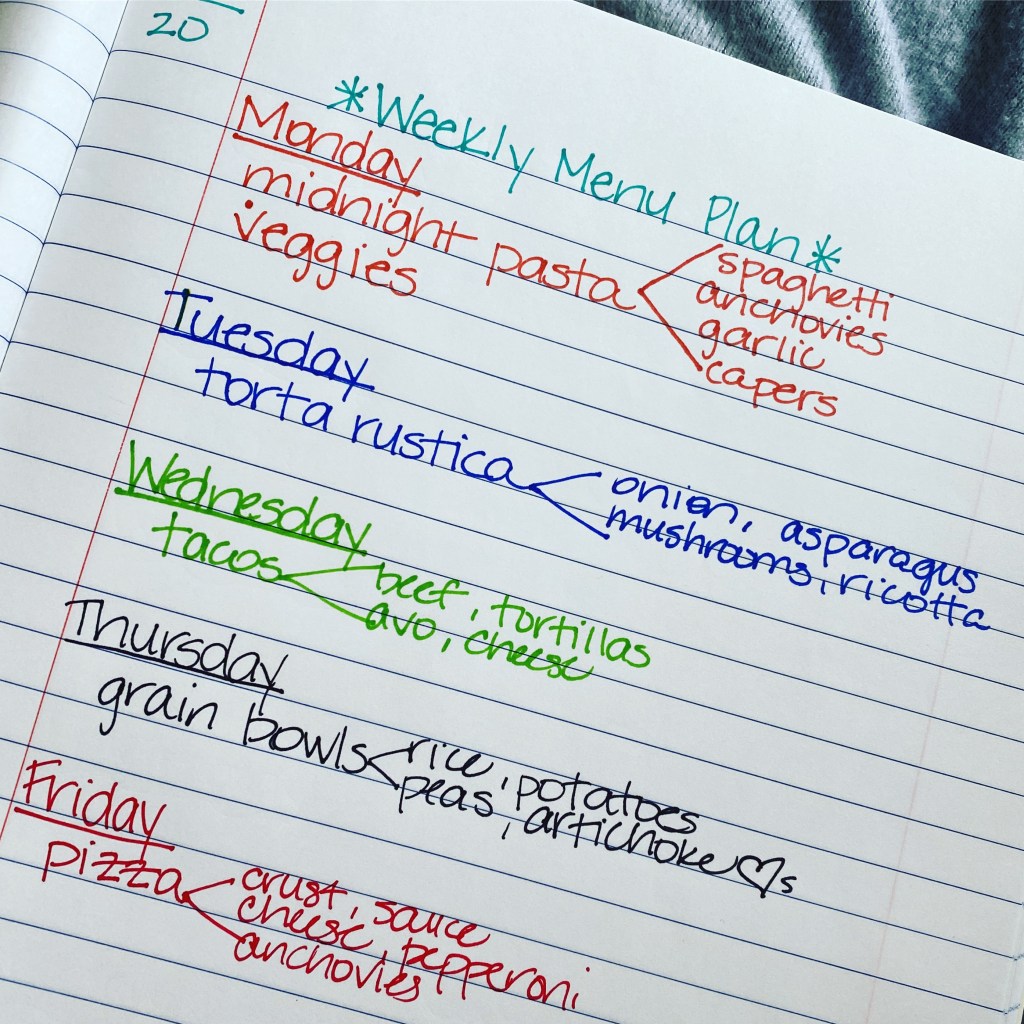 20
*Weekly Menu Plan*
Monday
midnight pasta
spaghetti
anchovies
garlic
capers
veggies
Tuesday
torta rustica
onion, asparagus
mushrooms, ricotta
Wednesday
tacos
beef, tortillas
avo, cheese
Thursday
grain bowls
rice, potatoes
peas, artichoke ♡s
Friday
pizza
crust, sauce
cheese, pepperoni
anchovies